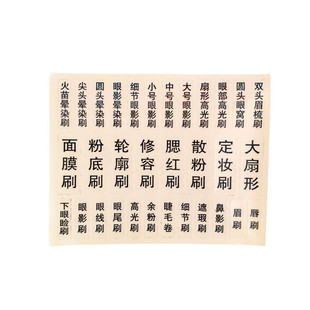 火苗晕染刷
尖头晕染刷
圆头晕染刷
眼影晕染刷
细节眼影刷
小号眼影刷
中号眼影刷
大号眼影刷
扇形高光刷
眼部高光刷
圆头眼窝刷
双头眉梳刷
面膜刷
粉底刷
轮廓刷
修容刷
腮红刷
散粉刷
定妆刷
大扇形
下眼睑刷
眼影刷
眼线刷
眼尾刷
高光刷
余粉刷
睫毛卷
细节刷
遮瑕刷
鼻影刷
眉刷
唇刷